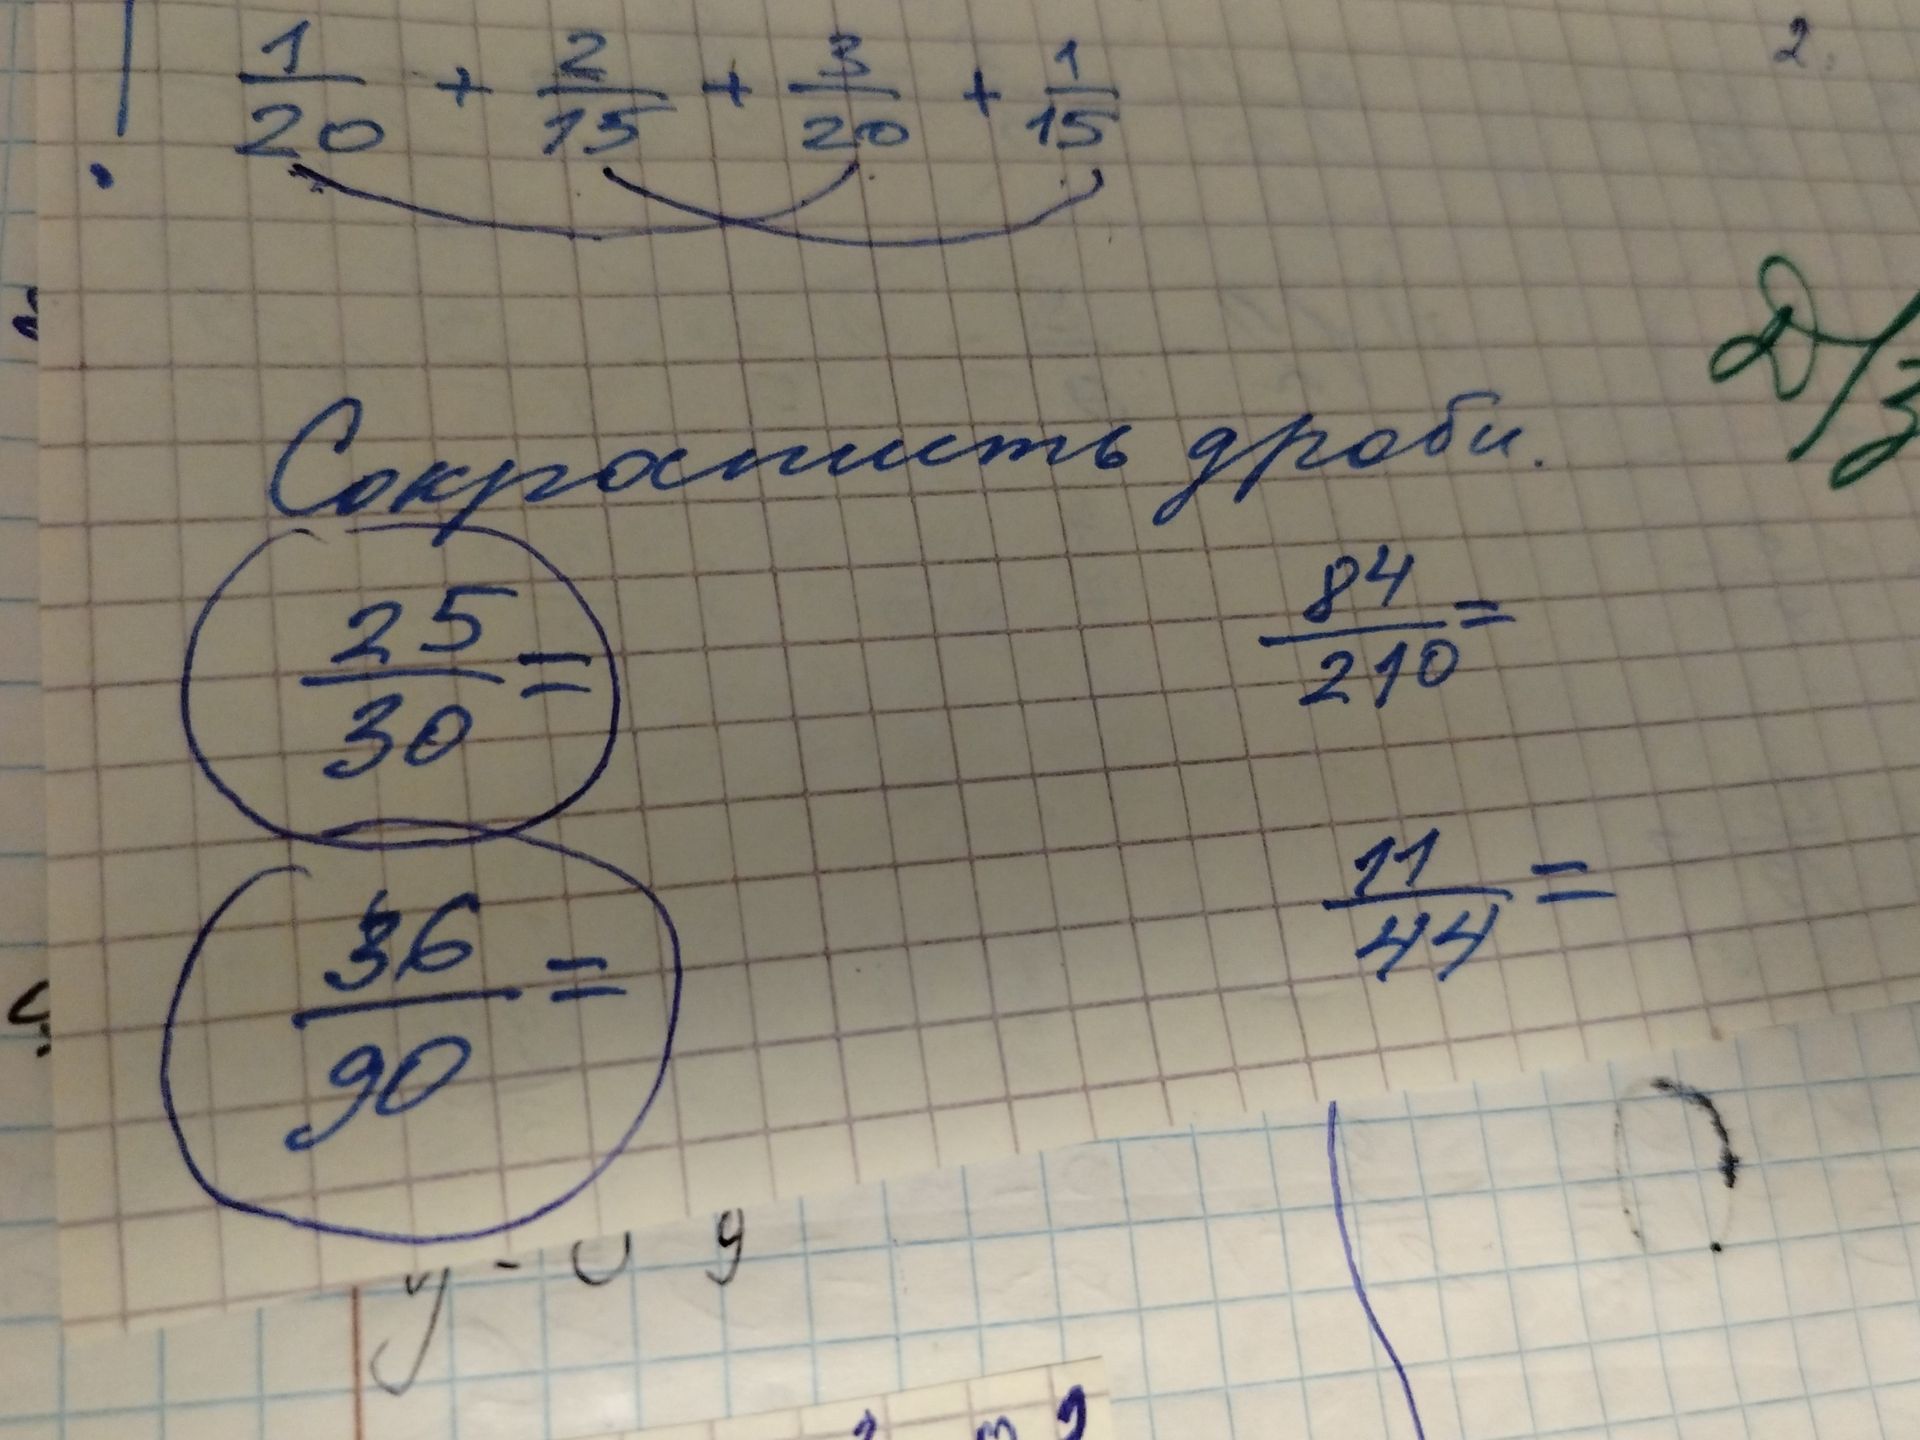 1/20 + 2/15 + 3/20 + 1/15
2.
Д/з
Сократить дроби.
25/30 =
84/210 =
36/90 =
11/44 =